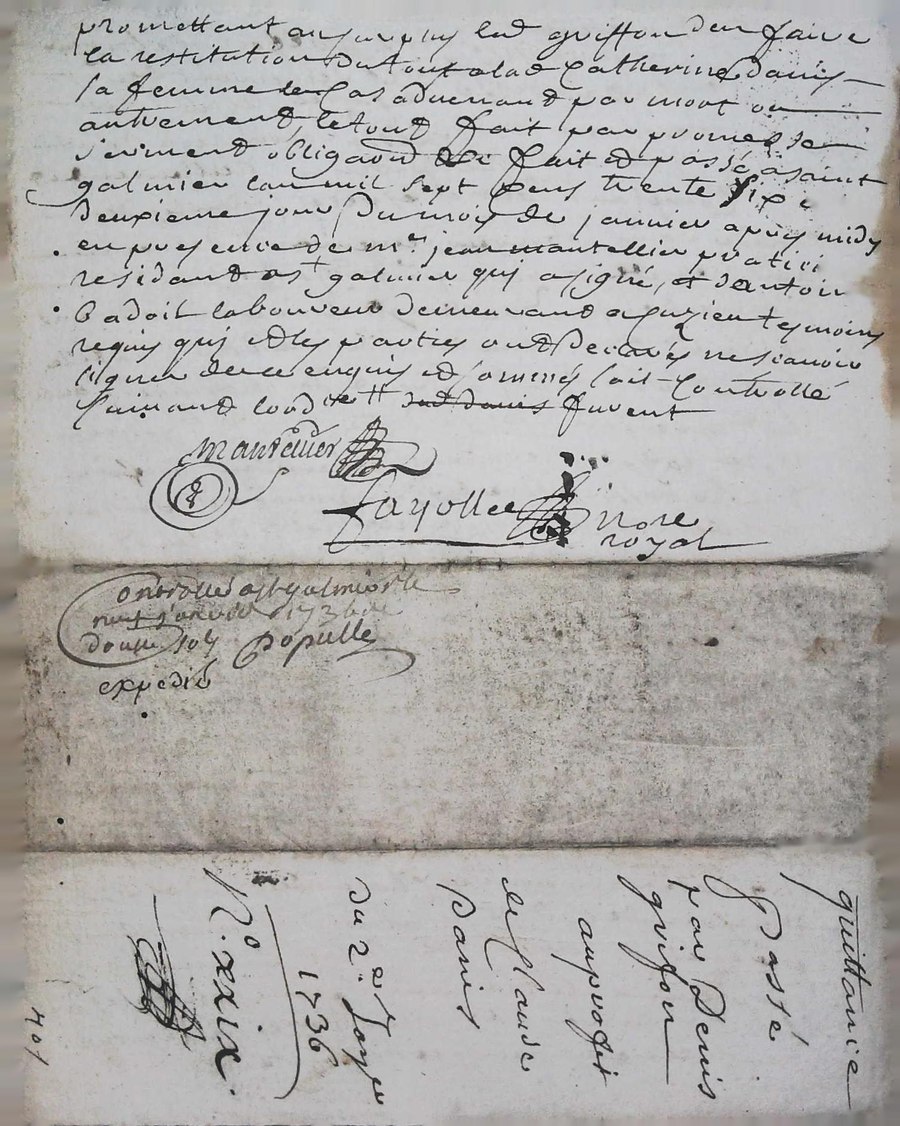 promettant au surplus led griffon den faire
la restitution du tout a lad Catherine danis
sa femme le Cas advenand par mort ou
autremend, le toud fait par promesse
sermend obligaon fait et passé a saint
galmier lan mil sept Cens trente sixe
deuxieme jour du mois de janvier apres midy
en presence de mr jean mantellier pratici
residand a st galmier qui a signé, et dantoin
badoit laboureur demeurand a Cuzieu tesmoins
requis qui et les parties ond declarés ne scavoir
signer de ce enquis et sommés soit Controllé
suivand lord danis furent
Mantellier
fayolle nore
royal
Controllé a st galmier le
huit janvier 1736 de
douze sols Populle
expedié
quittance
Passé
par Denis
grifon
au profit
de Claude
Danis
du 2e Janv
1736
N.o xxix.